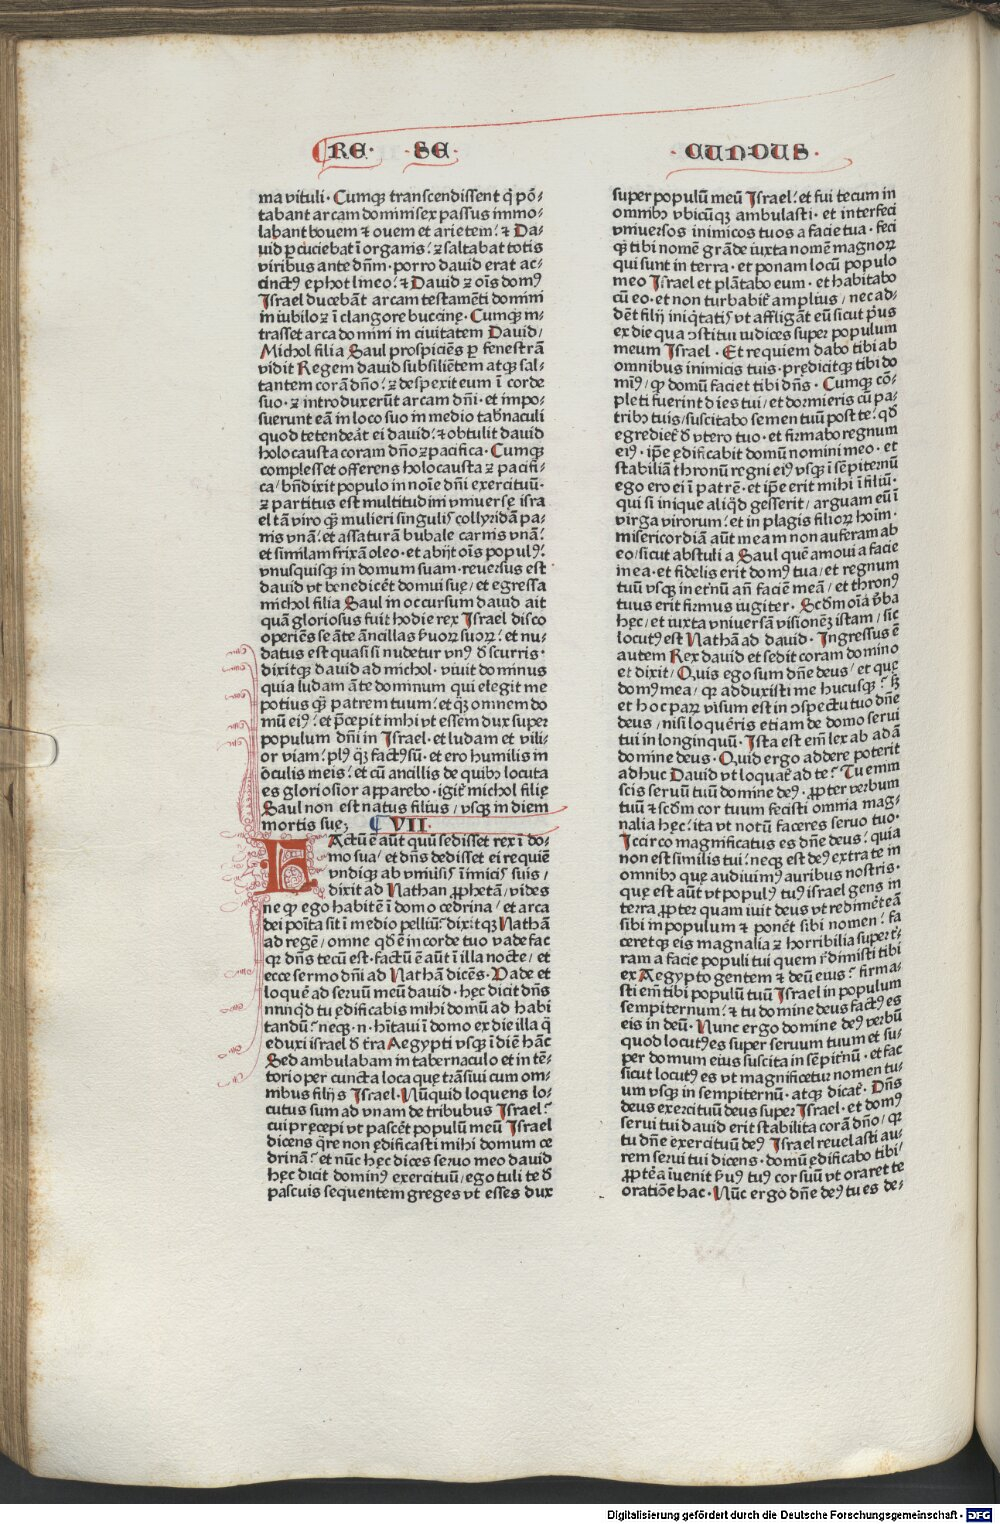 RE· SE
ma vituli· Cumqꝫ transcendissent q̄ pō⸗
tabant arcam domini sex passus immo⸗
labant bouem ⁊ ouem et arietem: ⁊ Da⸗
uid ꝑcuciebat ī organis: ⁊ saltabat totis
viribus ante dn̄m· porro david erat ac⸗
cinctꝰ ephot lineo: ⁊ David ⁊ oīs domꝰ
Israel ducebāt arcam testamēti domini
in iubilo ⁊ ī clangore buccinę· Cumqꝫ in⸗
trasset arca domini in civitatem David/
Michol filia Saul prospiciēs ꝑ fenestrā
vidit Regem david subsiliētem atqꝫ sal⸗
tantem corā dño: ⁊ despexit eum ī corde
suo· ⁊ introduxerūt arcam dñi· et impo⸗
suerunt eā in loco suo in medio tab̄naculi
quod tetendēat ei david: ⁊ obtulit david
holocausta coram dño ⁊ pacifica· Cumqꝫ
complesset offerens holocausta ⁊ pacifi⸗
ca/ bn̄dixit populo in noīe dñi exercituū·
⁊ partitus est multitudini vniuersę isra
el tā viro qꝫ mulieri singulis collyridā pa⸗
nis vnā: et assaturā bubale carnis vnā:
et similam frixā oleo· et abijt oīs populꝰ:
vnusquisqꝫ in domum suam· reversus est
david vt benedicēt domui suę/ et egressa
michol filia Saul in occursum david ait
quā gloriosus fuit hodie rex Israel disco
operiēs se āte āncillas s̄uoꝝ suoꝝ: et nu⸗
datus est quasi si nudetur vnꝰ d̄ scurris·
dixitqꝫ david ad michol· vivit dominus
quia ludam āte dominum qui elegit me
potius qꝫ patrem tuum: et qꝫ omnem do
mū eiꝰ: et p̄cepit mihi vt essem dux super
populum dñi in Israel· et ludam et vili⸗
or viam: plꝰ qꝫ factꝰ sū· et ero humilis in
ōculis meis: et cū ancillis de quibꝫ locuta
es gloriosior apparebo· igit̄ michol filię
Saul non est natus filius/ vsqꝫ in diem
mortis suę; VII·
FActū ē aūt quū sedisset rex ī do⸗
mo sua: et dn̄s dedisset ei requiē
vndiqꝫ ab vniūsis īimicis suis/
dixit ad Nathan ꝓphetā/ vides
ne qꝫ ego habitē ī domo cedrina/ et arca
dei poīta sit ī medio pelliū: dixitqꝫ Nathā
ad regē/ omne qd̄ ē in corde tuo vade fac
qꝫ dn̄s tecū est· factū ē aūt ī illa nocte/ et
ecce sermo dñi ad Nathā dicēs· Vade et
loquē ad seruū meū david· hęc dicit dn̄s
nunqd̄ tu ędificabis mihi domū ad habi
tandū: neqꝫ· n· hītaui ī domo ex die illa q̄
eduxi israel d̄ t̄ra Aegypti vsqꝫ ī diē hāc
Sed ambulabam in tabernaculo et in tē⸗
torio per cuncta loca quę trāsiui cum om⸗
nibus filijs Israel· Nūquid loquens lo⸗
cutus sum ad vnam de tribubus Israel:
cui pręcepi vt pascēt populū meū Israel
dicens q̄re non ędificasti mihi domum ce
drinā: et nūc hęc dices seruo meo david
hęc dicit dominꝰ exercituū/ ego tuli te d̄
pascuis sequentem greges vt esses dux
· CUNDUS ·
super populū meū Israel: et fui tecum in
omnibꝫ vbicūqꝫ ambulasti· et interfeci
vniuersos inimicos tuos a facie tua· feci
qꝫ tibi nomē grāde iuxta nomē magnoꝝ
qui sunt in terra· et ponam locū populo
meo Israel et plātabo eum· et habitabo
cū eo· et non turbabit̄ amplius/ nec ad⸗
dēt filij iniq̄tatis vt affligāt eū sicut p̄us
ex die qua ꝯstitui iudices super populum
meum Israel· Et requiem dabo tibi ab
omnibus inimicis tuis· predicitqꝫ tibi do
minꝰ/ qꝫ domū faciet tibi dn̄s· Cumqꝫ cō⸗
pleti fuerint dies tui/ et dormieris cū pa⸗
tribꝫ tuis/ suscitabo semen tuū post te: qd̄
egrediet̄ d̄ vtero tuo· et firmabo regnum
eiꝰ· ip̄e ędificabit domū nomini meo· et
stabiliā thronū regni eiꝰ vsqꝫ ī sēpiternū
ego ero ei ī patrē· et ip̄e erit mihi ī filiū·
qui si inique aliq̄d gesserit/ arguam eū ī
virga virorum: et in plagis filioꝝ hoīm·
misericordiā aūt meam non auferam ab
eo/ sicut abstuli a Saul quē amoui a facie
mea· et fidelis erit domꝰ tua/ et regnum
tuū vsqꝫ in et̄nū añ faciē meā/ et thronꝰ
tuus erit firmus iugiter· Scd̄m oīa v̄ba
hęc/ et iuxta vniuersā visionēꝫ istam/ sic
locutꝰ est Nathā ad david· Ingressus ē
autem Rex david et sedit coram domino
et dixit/ Quis ego sum dñe deus/ et quę
domꝰ mea/ qꝛ adduxisti me hucusqꝫ: sꝫ
et hoc paꝝ visum est in ꝯspectu tuo dñe
deus/ nisi loquēris etiam de domo serui
tui in longinquū· Ista est em̄ lex ab adā
domine deus· Quid ergo addere poterit
adhuc David vt loquat̄ ad te: Tu enim
scis seruū tuū domine deꝰ· ꝓpter verbum
tuū ⁊ scd̄m cor tuum fecisti omnia mag⸗
nalia hęc: ita vt notū faceres seruo tuo·
Iccirco magnificatus es dñe deus: quia
non est similis tui: neqꝫ est deꝰ extra te in
omnibꝫ quę audiuimꝰ auribus nostris·
quę est aūt vt populꝰ tuꝰ israel gens in
terra ꝓpter quam iuit deus vt redimēt eā
sibi in populum ⁊ ponēt sibi nomen: fa
ceretqꝫ eis magnalia ⁊ horribilia super t̄⸗
ram a facie populi tui quem r̄dimisti tibi
ex Aegypto gentem ⁊ deū eius: firma⸗
sti em̄ tibi populū tuū Israel in populum
sempiternum: ⁊ tu domine deus factꝰ es
eis in deū· Nunc ergo domine deꝰ verbū
quod locutꝰ es super seruum tuum et su⸗
per domum eius suscita in sēpit̄nū· et fac
sicut locutꝰ es vt magnificetur nomen tu⸗
um vsqꝫ in sempiternū· atqꝫ dicat̄· Dn̄s
deus exercituū deus super Israel· et domꝰ
serui tui david erit stabilita corā dño/ qꝛ
tu dñe exercituū deꝰ Israel revelasti au⸗
rem serui tui dicens· domū ędificabo tibi/
ꝓpt̄ea īuenit s̄uꝰ tuꝰ cor suū vt oraret te
oratiōe hac· Nūc ergo dñe deꝰ tu es de⸗
Digitalisierung gefördert durch die Deutsche Forschungsgemeinschaft - DFG